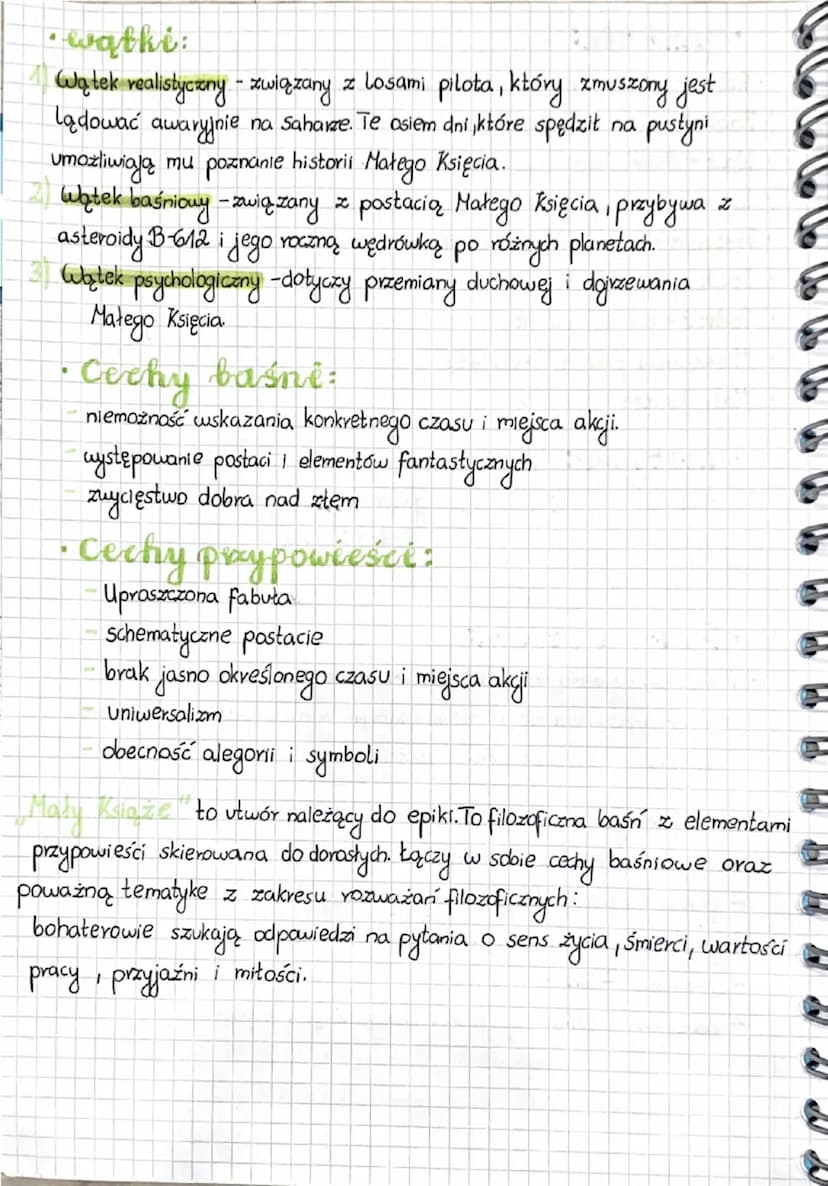 • wątki:
1) Wątek realistyczny - związany z losami pilota, który zmuszony jest
lądować awaryjnie na Saharze. Te osiem dni, które spędził na pustyni
umożliwiają mu poznanie historii Małego Księcia.
2) Wątek baśniowy - związany z postacią Małego Księcia, przybywa z
asteroidy B-612 i jego roczną wędrówką po różnych planetach.
3) Wątek psychologiczny - dotyczy przemiany duchowej i dojrzewania
Małego Księcia.
• Cechy baśni:
- niemożność wskazania konkretnego czasu i miejsca akcji.
- występowanie postaci i elementów fantastycznych
- zwycięstwo dobra nad złem
• Cechy przypowieści:
- Uproszczona fabuła
- schematyczne postacie
- brak jasno określonego czasu i miejsca akcji
- uniwersalizm
- obecność alegorii i symboli
„Mały Książe" to utwór należący do epiki. To filozoficzna baśń z elementami
przypowieści skierowana do dorosłych. Łączy w sobie cechy baśniowe oraz
poważną tematykę z zakresu rozważań filozoficznych:
bohaterowie szukają odpowiedzi na pytania o sens życia, śmierci, wartości
pracy, przyjaźni i miłości.